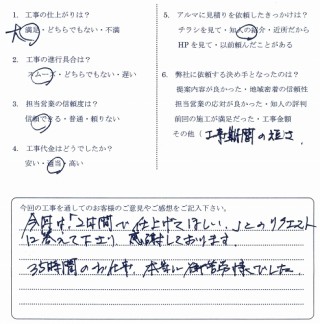 1. 工事の仕上がりは？
満足・どちらでもない・不満
2. 工事の進行具合は？
スムーズ・どちらでもない・遅い
3. 担当営業の信頼度は？
信頼できる・普通・頼りない
4. 工事代金はどうでしたか？
安い・適当・高い
5. アルマに見積りを依頼したきっかけは？
チラシを見て・知人の紹介・近所だから
HPを見て・以前頼んだことがある
6. 弊社に依頼する決め手となったのは？
提案内容が良かった・地域密着の信頼性
担当営業の応対が良かった・知人の評判
前回の施工が満足だった・工事金額
その他（工事期間の短さ
今回の工事を通してのお客様のご意見やご感想をご記入下さい。
今回は「2日間で仕上げてほしい」とのリクエスト
に答えて下さり、感謝しております
35時間のお仕事、本当に御苦労様でした。